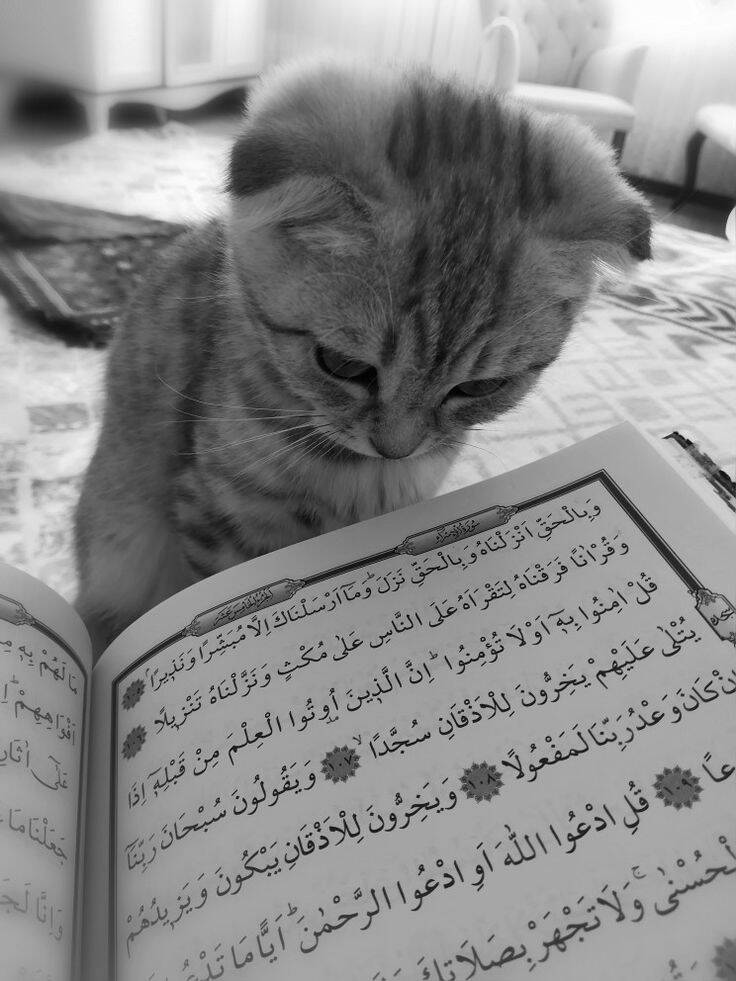 سُورَةُ الْاِسْرَاءِ
اَلْجُزْءُ الْخَامِسَ عَشَرَ
وَبِالْحَقِّ اَنْزَلْنَاهُ وَبِالْحَقِّ نَزَلَ وَمَٓا اَرْسَلْنَاكَ اِلَّا مُبَشِّرًا وَنَذ۪يرًا ﴿١٠٥﴾
وَقُرْاٰنًا فَرَقْنَاهُ لِتَقْرَاَهُ عَلَى النَّاسِ عَلٰى مُكْثٍ وَنَزَّلْنَاهُ تَنْز۪يلًا ﴿١٠٦﴾
قُلْ اٰمِنُوا بِه۪ٓ اَوْ لَا تُؤْمِنُوا ۜ اِنَّ الَّذ۪ينَ اُو۫تُوا الْعِلْمَ مِنْ قَبْلِه۪ٓ اِذَا
يُتْلٰى عَلَيْهِمْ يَخِرُّونَ لِلْاَذْقَانِ سُجَّدًا ﴿١٠٧﴾ وَيَقُولُونَ سُبْحَانَ رَبِّنَٓا
نْ كَانَ وَعْدُ رَبِّنَا لَمَفْعُولًا ﴿١٠٨﴾ وَيَخِرُّونَ لِلْاَذْقَانِ يَبْكُونَ وَيَز۪يدُهُمْ
عًا ﴿١٠٩﴾ قُلِ ادْعُوا اللّٰهَ اَوِ ادْعُوا الرَّحْمٰنَ ۜ اَيًّا مَا تَدْعُـ
لْحُسْنٰى ۚ وَلَا تَجْهَرْ بِصَلَاتِكَ
مَا لَهُمْ بِه۪
اَفْوَاهِهِمْ
عَلٰٓى اٰثَارِ
جَعَلْنَا مَا
وَاِنَّا لَجَـ